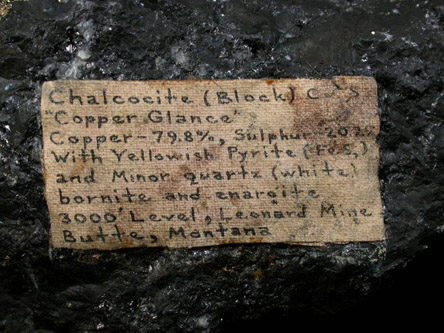 Chalcocite (Block) C S
"Copper Glance"
Copper - 79.8%, Sulphur - 20.2%
With Yellowish Pyrite (FeS₂)
and Minor quartz (white)
bornite and enargite
3000' Level, Leonard Mine
Butte, Montana